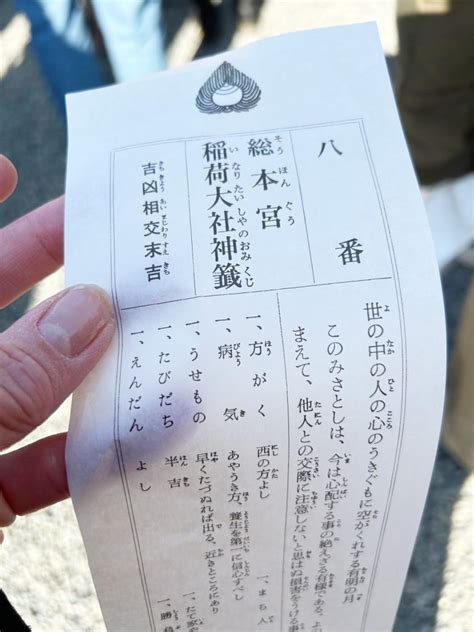 八番
総本宮
稲荷大社神籤
吉凶相交末吉
世の中の人の心のうきぐもに空がくれする有明の月
このみさとしは、今は心配する事の絶えざる有様である。
まえて、他人との交際に注意しないと思はぬ損害をうける事
一、方がく 西の方よし
一、病気 あやうき方、養生を第一に信心すべし
一、うせもの 早くたづぬれば出る、近きところにあり
一、たびだち 半吉
一、えんだん よし
一、まち人